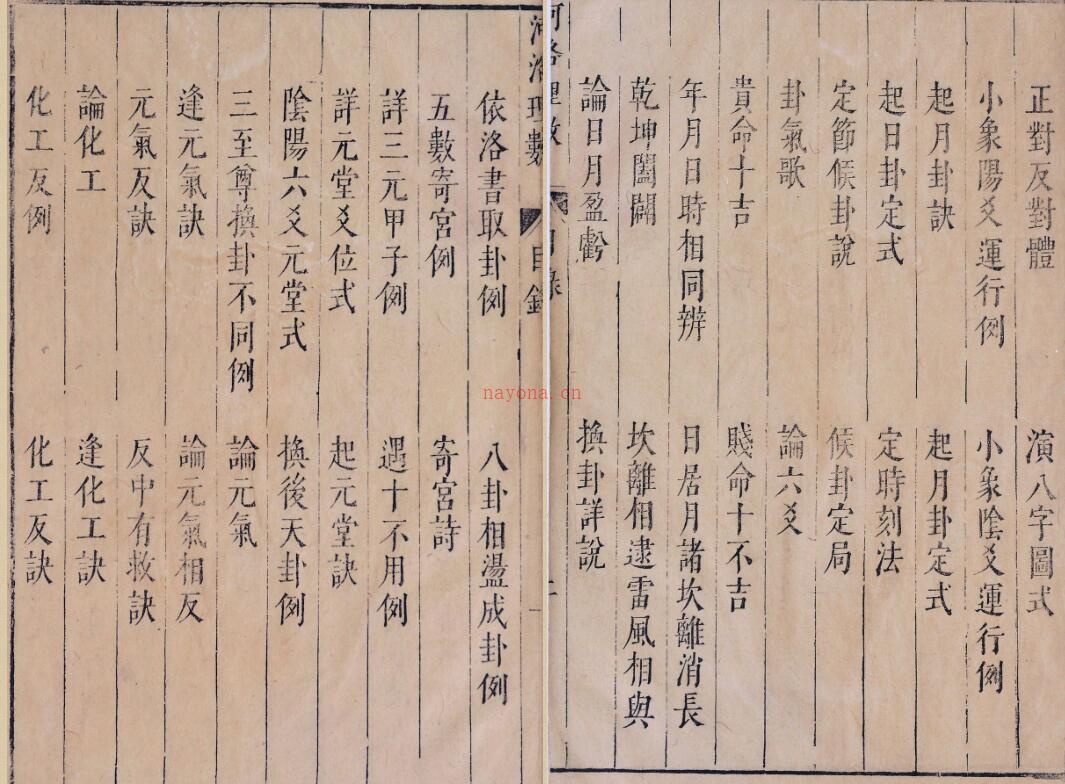 正對反對體　演八字圖式
小象陽爻運行例　小象陰爻運行例
起月卦訣　起月卦定式
起日卦定式　定時刻法
定節候卦說　候卦定局
卦氣歌　論六爻
貴命十吉　賤命十不吉
年月日時相同辨　日居月諸坎離消長
乾坤闔闢　坎離相逮雷風相與
論日月盈虧　換卦詳說
河洛理數　目錄
河洛理數　目錄
依洛書取卦例　八卦相盪成卦例
五數寄宮例　寄宮詩
詳三元甲子例　遇十不用例
詳元堂爻位式　起元堂訣
陰陽六爻元堂式　換後天卦例
三至尊換卦不同例　論元氣
逢元氣訣　論元氣相反
元氣反訣　反中有救訣
論化工　逢化工訣
化工反例　化工反訣
nayona.cn